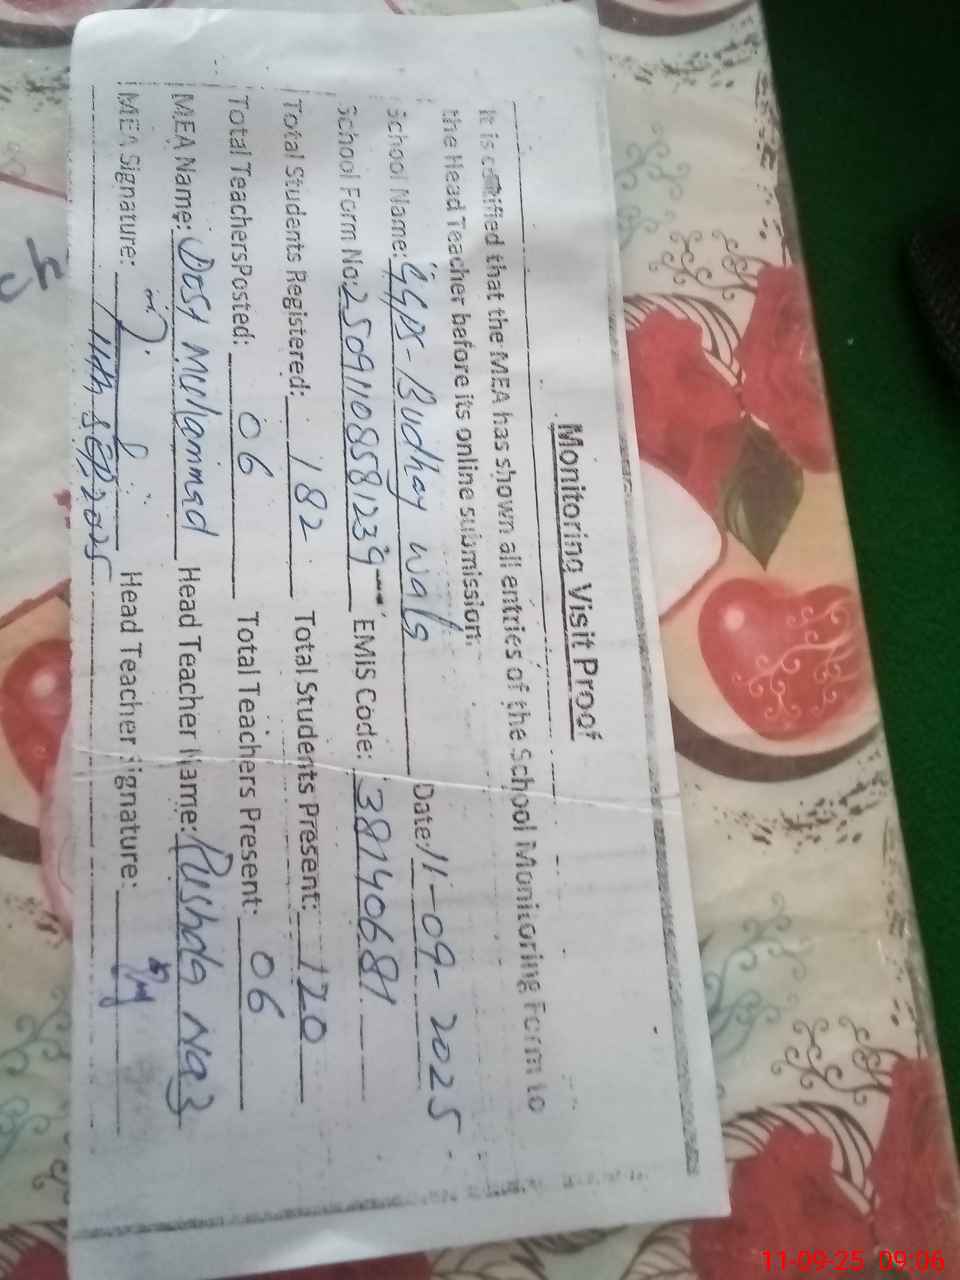 Monitoring Visit Proof
It is certified that the MEA has shown all entries of the School Monitoring Form to
the Head Teacher before its online submission.
School Name: GGPS-Budhay wala Date: 11-09-2025
School Form No: 25091108581239 EMIS Code: 38140681
Total Students Registered: 182 Total Students Present: 120
Total TeachersPosted: 06 Total Teachers Present: 06
MEA Name: Dost Muhammad Head Teacher Name: Rushda Naz
MEA Signature: Head Teacher Signature:
11th Sep, 2025
11-09-25 09:06